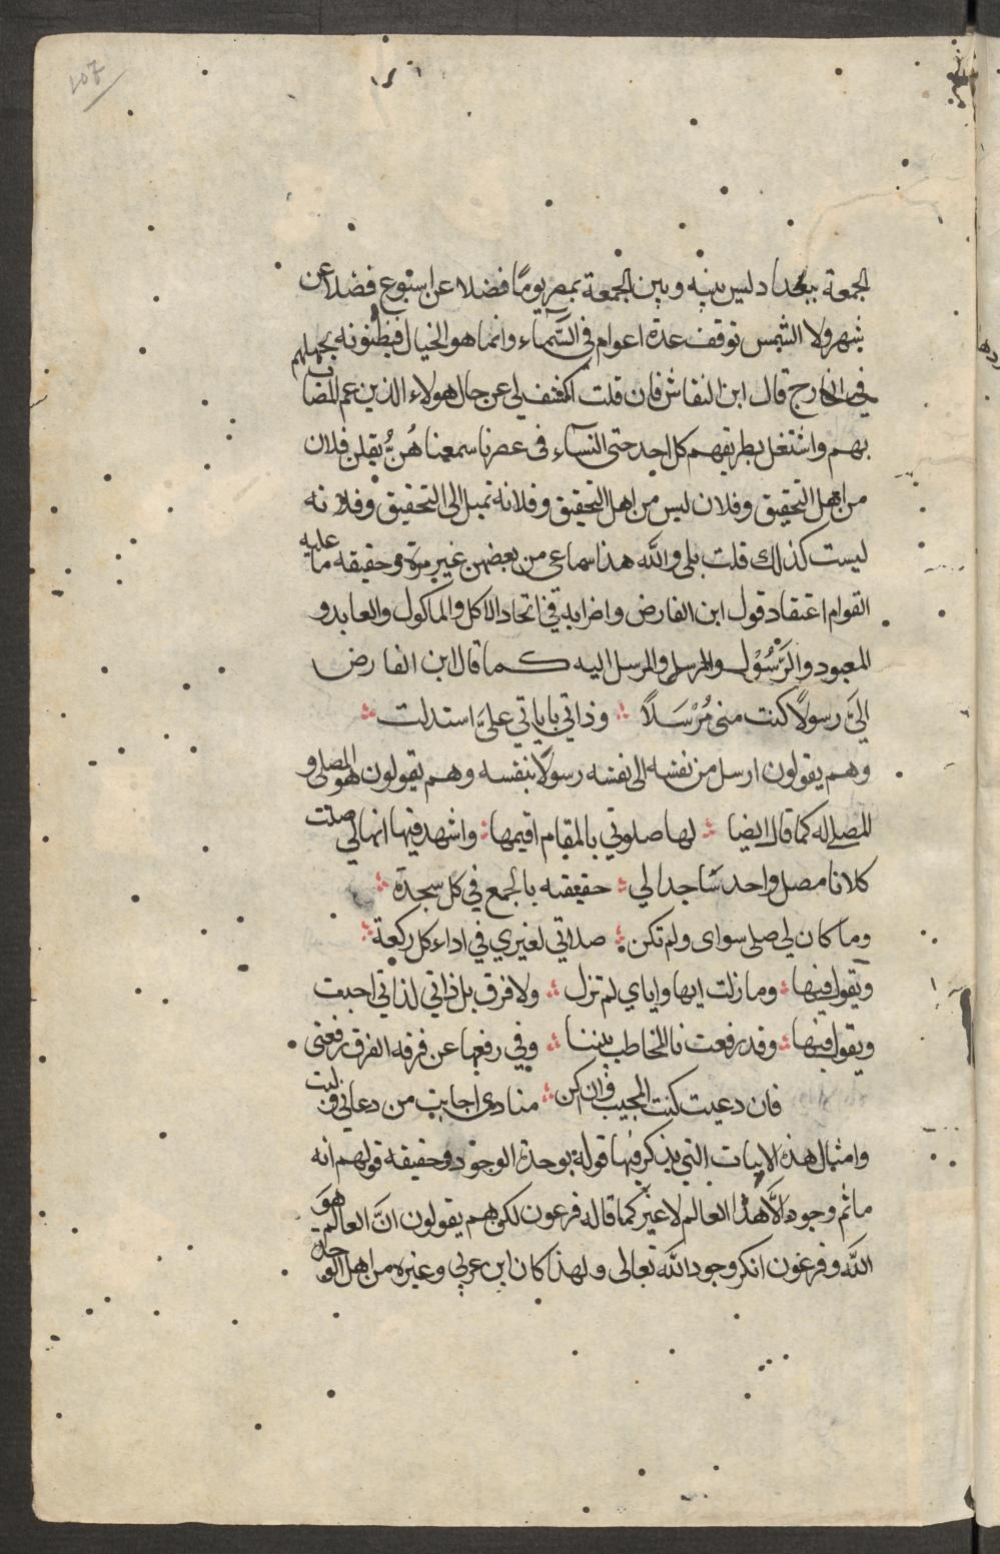 107
الجمعة ببغداد ليس بينه وبين الجمعة بمصر يومًا فضلا عن اسبوع فضلا عن
شهر ولا الشمس توقف عدة اعوام في السَّمآء وانما هو الخيال فيظنونه بجهلهم
في الخارج قال ابن النقاش فان قلت اكشف لي عن حال هولاء الذين عم المصاب
بهم واشتغل بطريقهم كل احد حتى النسآء فى عصرنا سمعنا هُنَّ يقلن فلان
من اهل التحقيق وفلان ليس من اهل التحقيق وفلانه تميل الى التحقيق وفلانه
ليست كذلك قلت بلى والله هذا سماعى من بعضهن غير مرة وحقيقه ما عليه
القوام اعتقاد قول ابن الفارض واضرابه في اتحاد الاكل والماكول والعابد و
المعبود والرَّسُوْل والمرسل والمرسل اليه كما قال ابن الفارض
اليَّ رسولًا كنت منى مُرْسَلًا ؞ وذاتي باياتي علىَّ استدلت ؞
وهم يقولون ارسل من نفسه الى نفسه رسولًا بنفسه وهم يقولون هو المصلى و
المصلى له كما قال ايضا ؞ لها صلوتي بالمقام اقيمها ؞ واشهد فيها انها لي صلت
كلانا مصل واحد ساجد الي ؞ حقيقته بالجمع في كل سجدة ؞
وما كان لي صلى سواى ولم تكن ؞ صلاتي لغيري في اداء كل ركعة ؞
ويقول فيها ؞ وما زلت اياها واياي لم تزل ؞ ولا فرق بل ذاتي لذاتي احبت
ويقول فيها ؞ وقد رفعت تا المخاطب بيننا ؞ وفي رفعها عن فرقة الفرق رفعتى
فان دعيت كنت المجيب وان اكن ؞ منادى اجابت من دعانى ولبت
وامثال هذه الابيات التي يذكر فيها قوله بوحدة الوجود وحقيقة قولهم انه
ما ثم وجود الَّا هذا العالم لا غير كما قاله فرعون لكن هم يقولون انَّ العالم هوَ
الله وفرعون انكر وجود الله تعالى ولهذا كان ابن عربي وغيره من اهل الوحدة